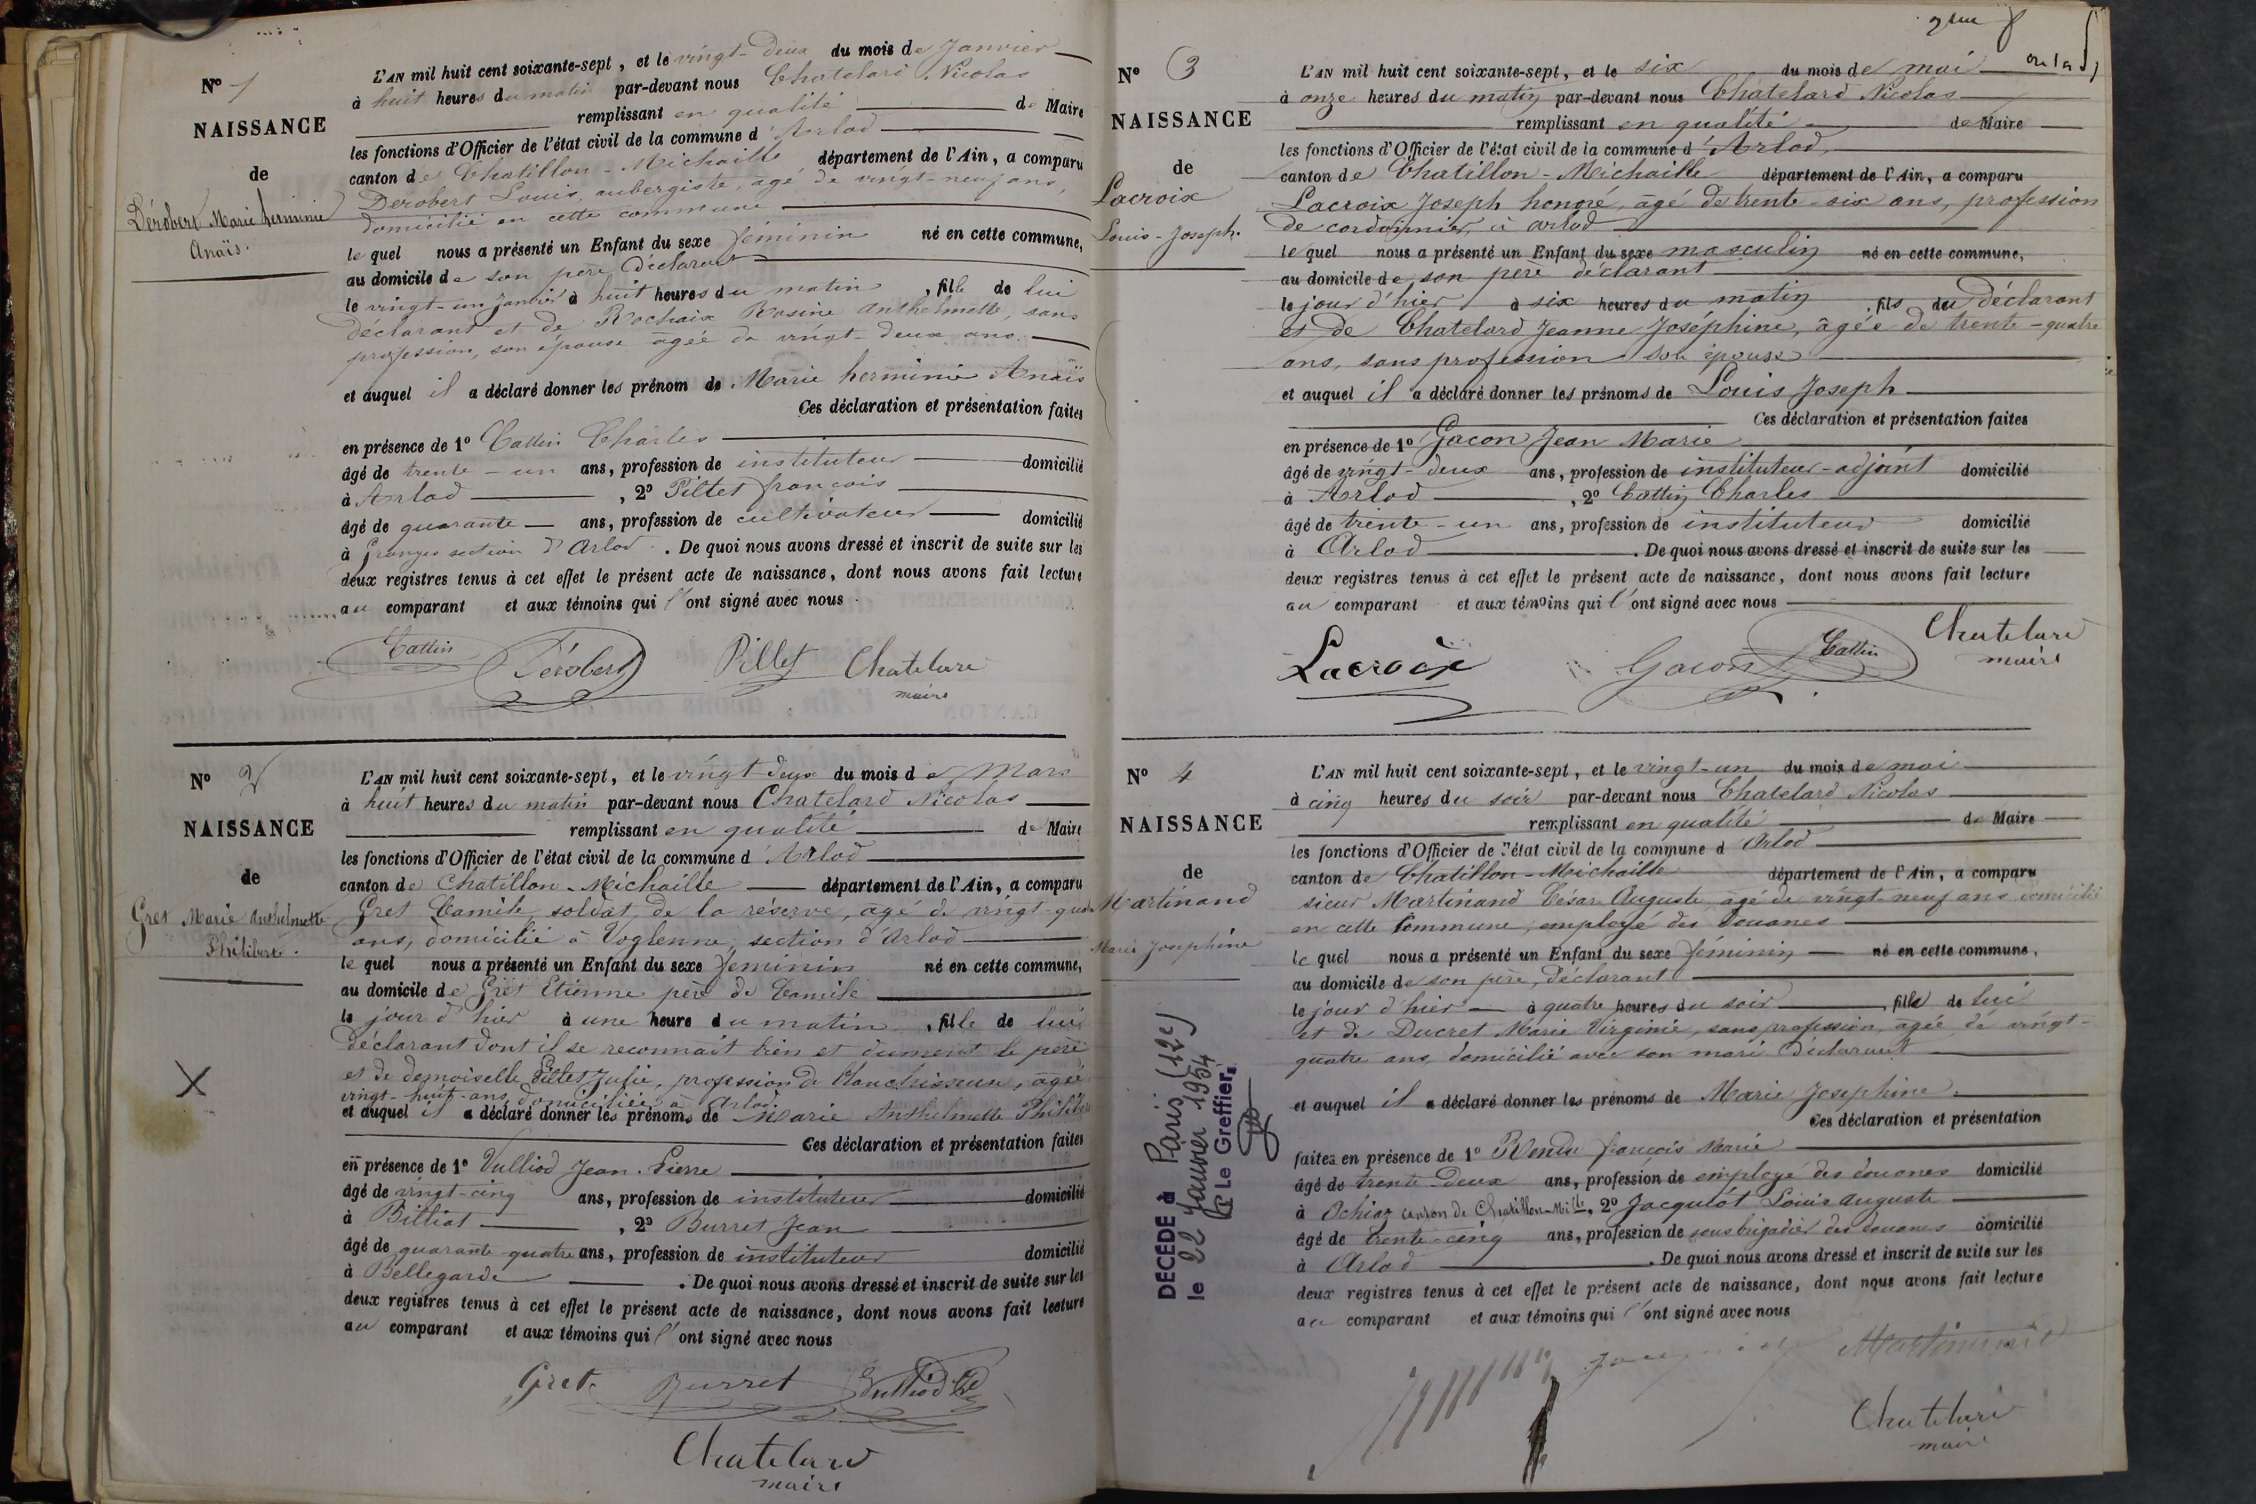 N° 1
NAISSANCE
de
Dérobert Marie herminie
Anaïs.
L'AN mil huit cent soixante-sept, et le vingt-deux du mois de Janvier
à huit heures du matin par-devant nous Chatelard Nicolas
remplissant en qualité de Maire
les fonctions d'Officier de l'état civil de la commune d'Arlod
canton de Chatillon-Michaille département de l'Ain, a comparu
Dérobert Louis, aubergiste, âgé de vingt-neuf ans,
domicilié en cette commune
le quel nous a présenté un Enfant du sexe féminin né en cette commune,
au domicile de son père déclarant
le vingt-un janvier à huit heures du matin, fille de lui
déclarant et de Rochaix Rosine Anthelmette, sans
profession, son épouse agée de vingt-deux ans.
et auquel il a déclaré donner les prénom de Marie herminie Anaïs
Ces déclaration et présentation faites
en présence de 1° Cattin Charles
âgé de trente-un ans, profession de instituteur domicilié
à Arlod, 2° Pillet françois
âgé de quarante ans, profession de cultivateur domicilié
à Granges section d'Arlod. De quoi nous avons dressé et inscrit de suite sur les
deux registres tenus à cet effet le présent acte de naissance, dont nous avons fait lecture
au comparant et aux témoins qui l'ont signé avec nous.
Cattin Dérobert Pillet Chatelard
maire
N° 2
NAISSANCE
de
Gret Marie Anthelmette
Philiberte.
L'AN mil huit cent soixante-sept, et le vingt deux du mois de Mars
à huit heures du matin par-devant nous Chatelard Nicolas
remplissant en qualité de Maire
les fonctions d'Officier de l'état civil de la commune d'Arlod
canton de Chatillon-Michaille département de l'Ain, a comparu
Gret Camile, soldat de la réserve, agé de vingt-quatre
ans, domicilié à Voglenne, section d'Arlod
le quel nous a présenté un Enfant du sexe féminin né en cette commune,
au domicile de Gret Etienne père de Camile
le jour d'hier à une heure du matin, fille de lui
déclarant dont il se reconnait bien et dument le père
et de demoiselle Pillet Julie, profession de blanchisseuse, agée
vingt-huit-ans, domiciliée à Arlod.
et auquel il a déclaré donner les prénoms de Marie Anthelmette Philiberte
Ces déclaration et présentation faites
en présence de 1° Vulliod Jean-Pierre
âgé de vingt-cinq ans, profession de instituteur domicilié
à Billiat, 2° Burret Jean
âgé de quarante-quatre ans, profession de instituteur domicilié
à Bellegarde. De quoi nous avons dressé et inscrit de suite sur les
deux registres tenus à cet effet le présent acte de naissance, dont nous avons fait lecture
au comparant et aux témoins qui l'ont signé avec nous
Gret. Burret Vulliod
Chatelard
maire
N° 3
NAISSANCE
de
Lacroix
Louis-Joseph.
L'AN mil huit cent soixante-sept, et le six du mois de mai
à onze heures du matin par-devant nous Chatelard Nicolas
remplissant en qualité de Maire
les fonctions d'Officier de l'état civil de la commune d'Arlod,
canton de Chatillon-Michaille département de l'Ain, a comparu
Lacroix Joseph honoré, agé de trente-six ans, profession
de cordonnier, à arlod
le quel nous a présenté un Enfant du sexe masculin né en cette commune,
au domicile de son père déclarant
le jour d'hier à six heures du matin, fils du déclarant
et de Chatelard Jeanne Joséphine, âgée de trente-quatre
ans, sans profession son épouse
et auquel il a déclaré donner les prénoms de Louis Joseph
Ces déclaration et présentation faites
en présence de 1° Gacon Jean Marie
âgé de vingt-deux ans, profession de instituteur-adjoint domicilié
à Arlod, 2° Cattin Charles
âgé de trente-un ans, profession de instituteur domicilié
à Arlod. De quoi nous avons dressé et inscrit de suite sur les
deux registres tenus à cet effet le présent acte de naissance, dont nous avons fait lecture
au comparant et aux témoins qui l'ont signé avec nous
Lacroix Gacon Cattin Chatelard
maire
N° 4
NAISSANCE
de
Martinand
Marie Josephine
DÉCÉDÉ à Paris (12e)
le 22 Janvier 1954
Le Greffier,
L'AN mil huit cent soixante-sept, et le vingt-un du mois de mai
à cinq heures du soir par-devant nous Chatelard Nicolas
remplissant en qualité de Maire
les fonctions d'Officier de l'état civil de la commune d Arlod
canton de Chatillon-Michaille département de l'Ain, a comparu
sieur Martinand César Auguste, agé de vingt-neuf ans domicilié
en cette Commune, employé des Douanes
le quel nous a présenté un Enfant du sexe féminin né en cette commune,
au domicile de son père, déclarant
le jour d'hier à quatre heures du soir, fille de lui
et de Ducret Marie Virginie, sans profession, agée de vingt-
quatre ans, domicilié avec son mari déclarant
et auquel il a déclaré donner les prénoms de Marie Josephine
Ces déclaration et présentation
faites en présence de 1° Rendu françois Marie
âgé de trente-deux ans, profession de employé des douanes domicilié
à Ochiaz canton de Chatillon-Mille, 2° Jacquiot Louis auguste
âgé de trente-cinq ans, profession de sous brigadier des douanes domicilié
à Arlod. De quoi nous avons dressé et inscrit de suite sur les
deux registres tenus à cet effet le présent acte de naissance, dont nous avons fait lecture
au comparant et aux témoins qui l'ont signé avec nous
Martinand
Chatelard
maire